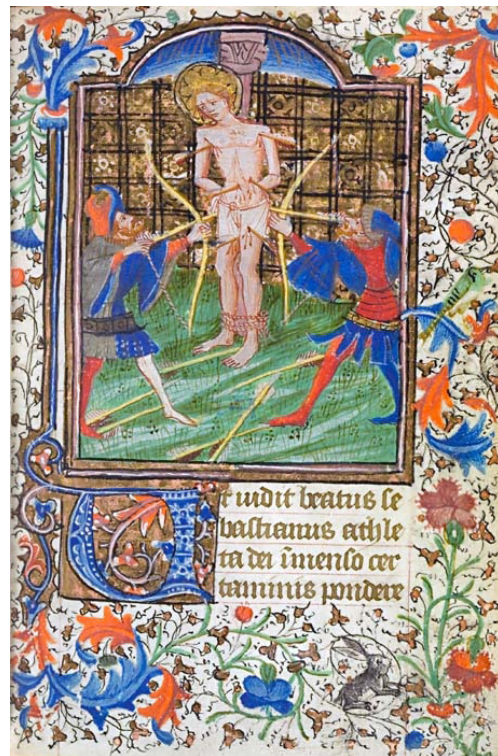 W
Ut uidit beatus se
bastianus athle
ta dei īmenso cer
taminis pondere